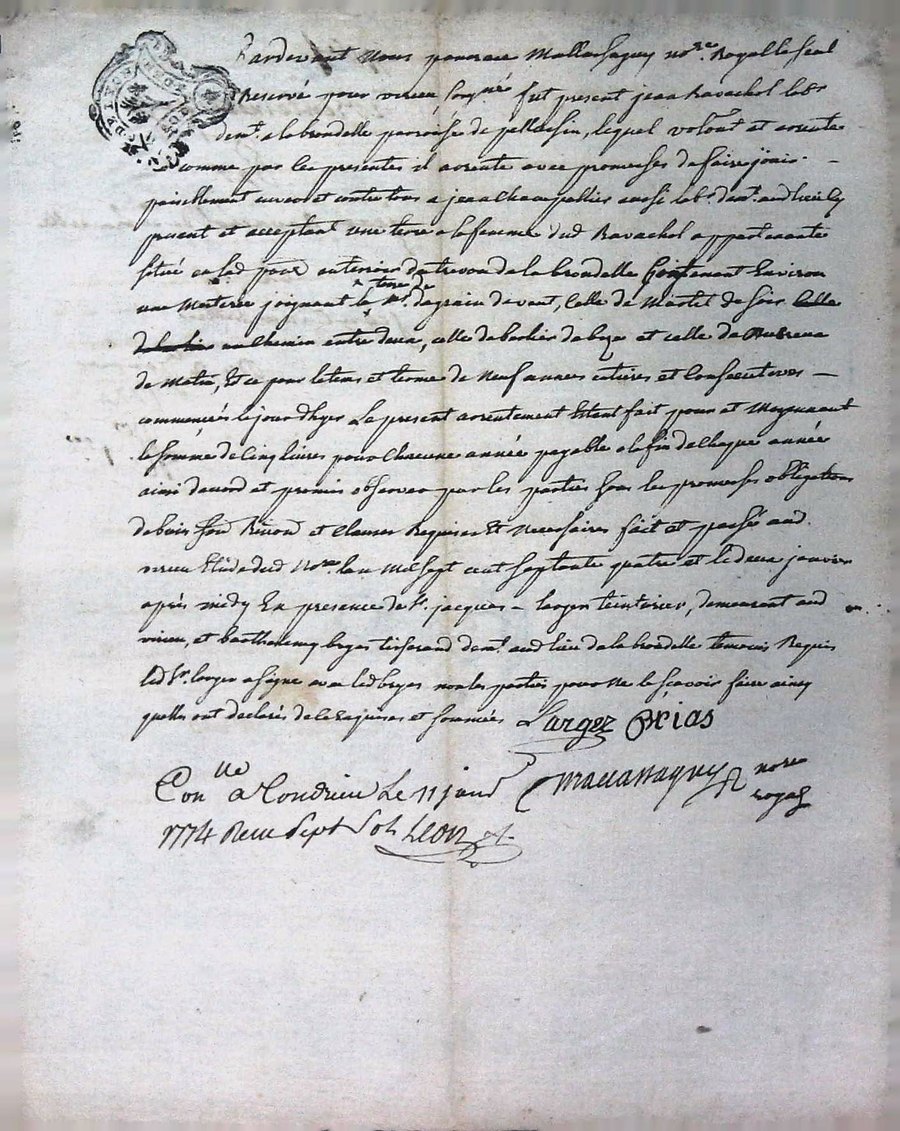 Pardevant Nous pancrace Mallassagny no.re Royal le seul
Reservé pour virieu soug.né fut present jean Ravachol lab.r
dem.t a la brondelle parroisse de pellussin, lequel volont.t et arente
comme par les presentes il arente avec promesses de faire jouir
paisiblement envers et contre tous a jean aussi lab.r dem.t aud lieu icy
present et acceptant une terre a la femme dud Ravachol appartenante
situé au lad de la brondelle Contenant Environ
une Meterée joignant la terre du s.r de grain de vent, Celle de Martel de soir Celle
un chemin entre deux, celle de barlier de bize et celle de
de matin, Et ce pour le tems et terme de Neuf années entieres et Consecutives
commencées le jourdhuy Le present arentement Estant fait pour et Moyennant
la somme de Cinq livres pour Chacune année payable a la fin de chaque année
ainsi daccord et promis observer par les parties sous les promesses obligations
de biens Renon et clauses Requises Et Necessaires fait et passé aud
virieu Etude dud No.re lan Mil sept cent septante quatre et le deux janvier
après midy En presence de s.r jacques larger teinturier, demeurant aud
virieu, et barthelemy bryas tisserand dem.t aud lieu de la brondelle temoins Requis
led s.r larger a signé avec led bryas non les parties pour Ne le sçavoir faire ainsy
quelles ont declarés de ce requises et sommées Larger Brias
Con.lle a Condrieu Le 11 janv.r Mallassagny no.re
1774 Recu Sept sols Leon royal